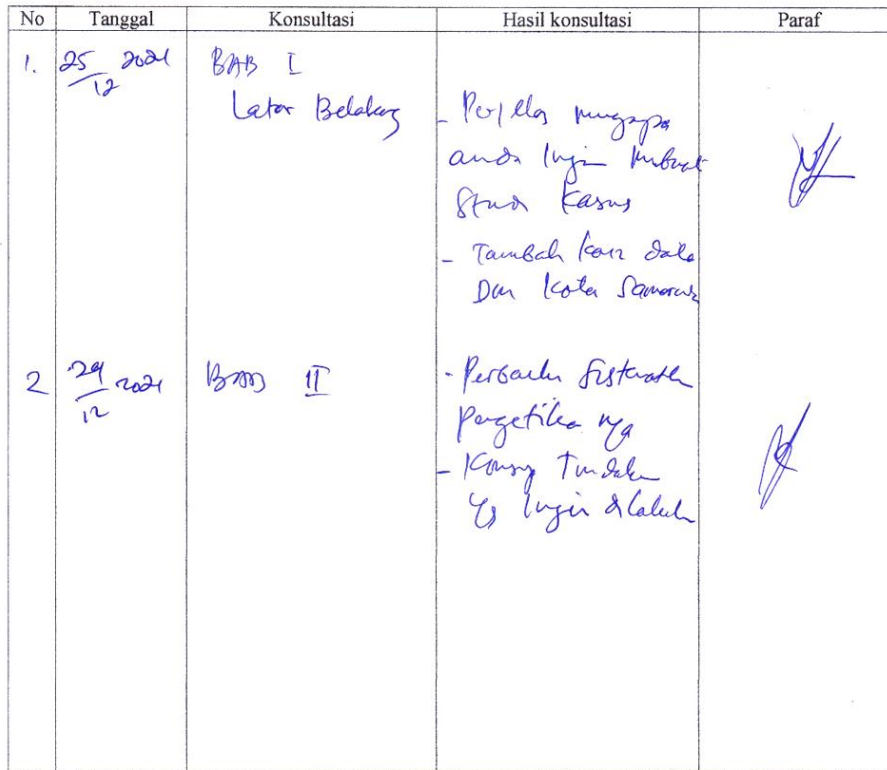 No Tanggal Konsultasi Hasil konsultasi Paraf
1. 25/12 2021 BAB I
Latar Belakang
- Perjelas mengapa
anda Ingin membuat
Studi Kasus
- Tambahkan data
Dari Kota Samarinda
2 29/12 2021 BAB II
- Perbaiki Sistematika
Pengetikannya
- Tindakan
yg Ingin dilakukan